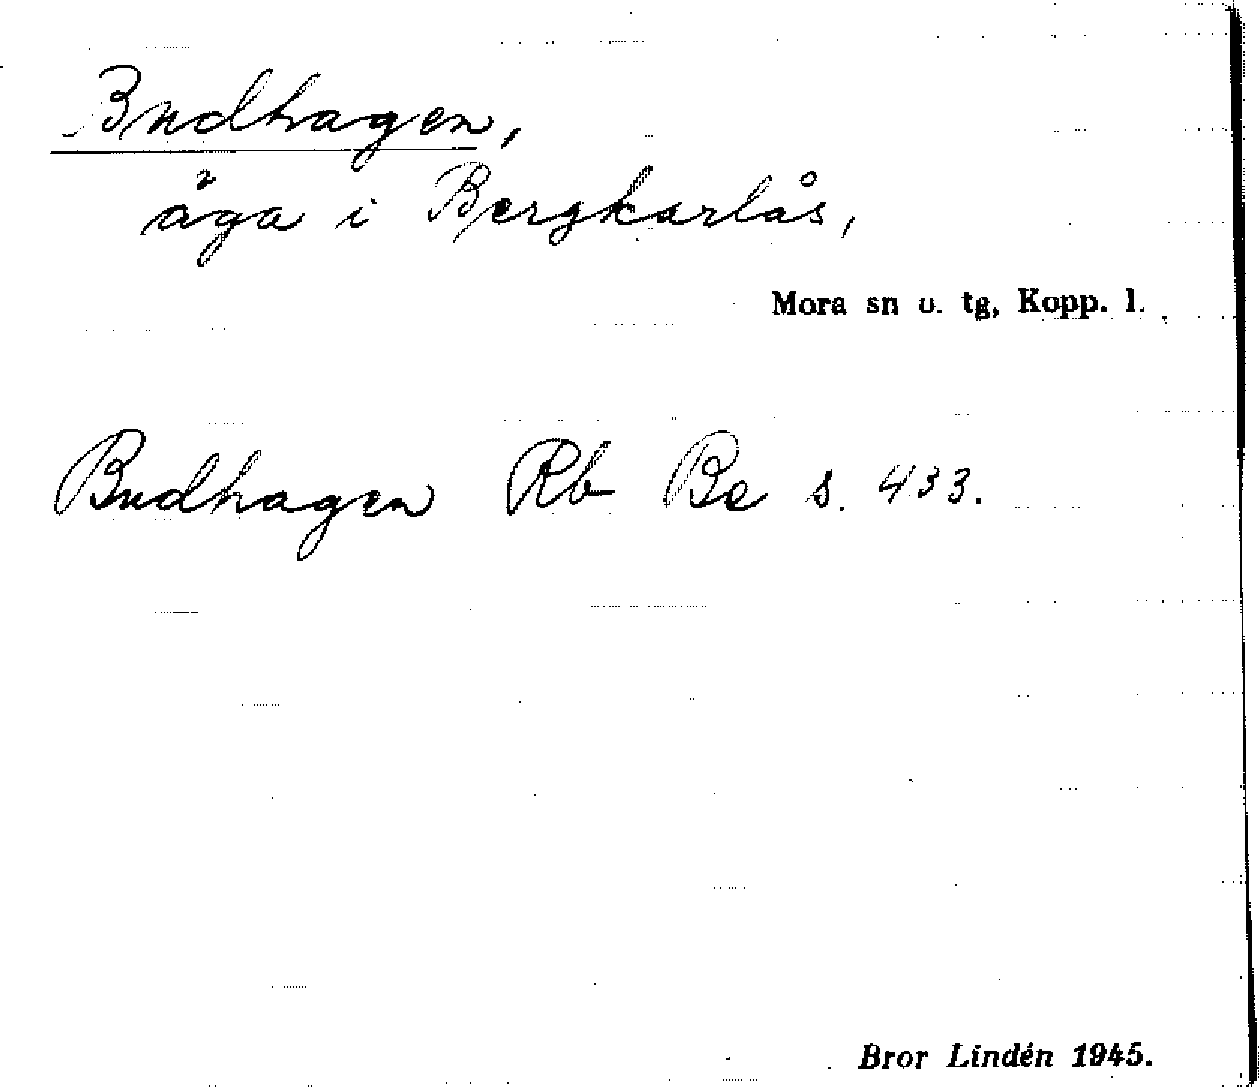 Budhagen,
äga i Bergkarlås,
Mora sn o. tg, Kopp. l.
Budhagen Rb Be s. 433.
Bror Lindén 1945.